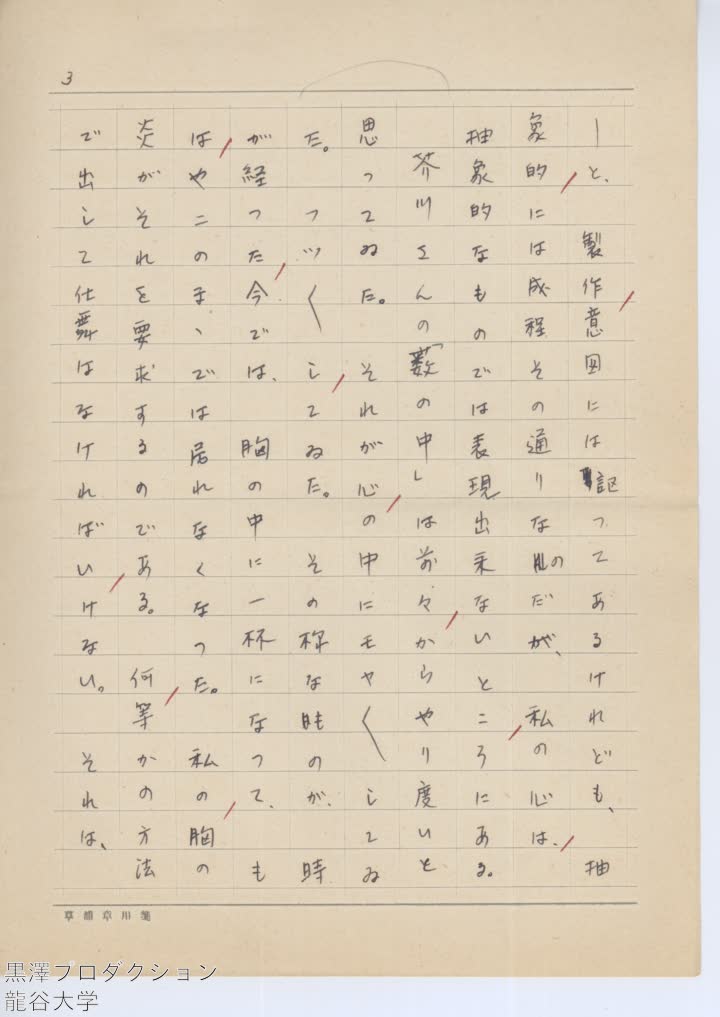 3
ーと、製作意図には記つてあるけれども、抽
象的には成程その通りなのだが、私の心は、
抽象的なものでは表現出来ないところにある。
芥川さんの「藪の中」は前々からやり度いと
思つてゐた。それが心の中にモヤ〱してゐ
た。フツ〱してゐた。その様なものが、時
が経つた今では、胸の中に一杯になつて、も
はやこのまゝでは居れなくなつた。私の胸の
炎がそれを要求するのである。何等かの方法
で出して仕舞はなければいけない。それは、
黒澤プロダクション
龍谷大学